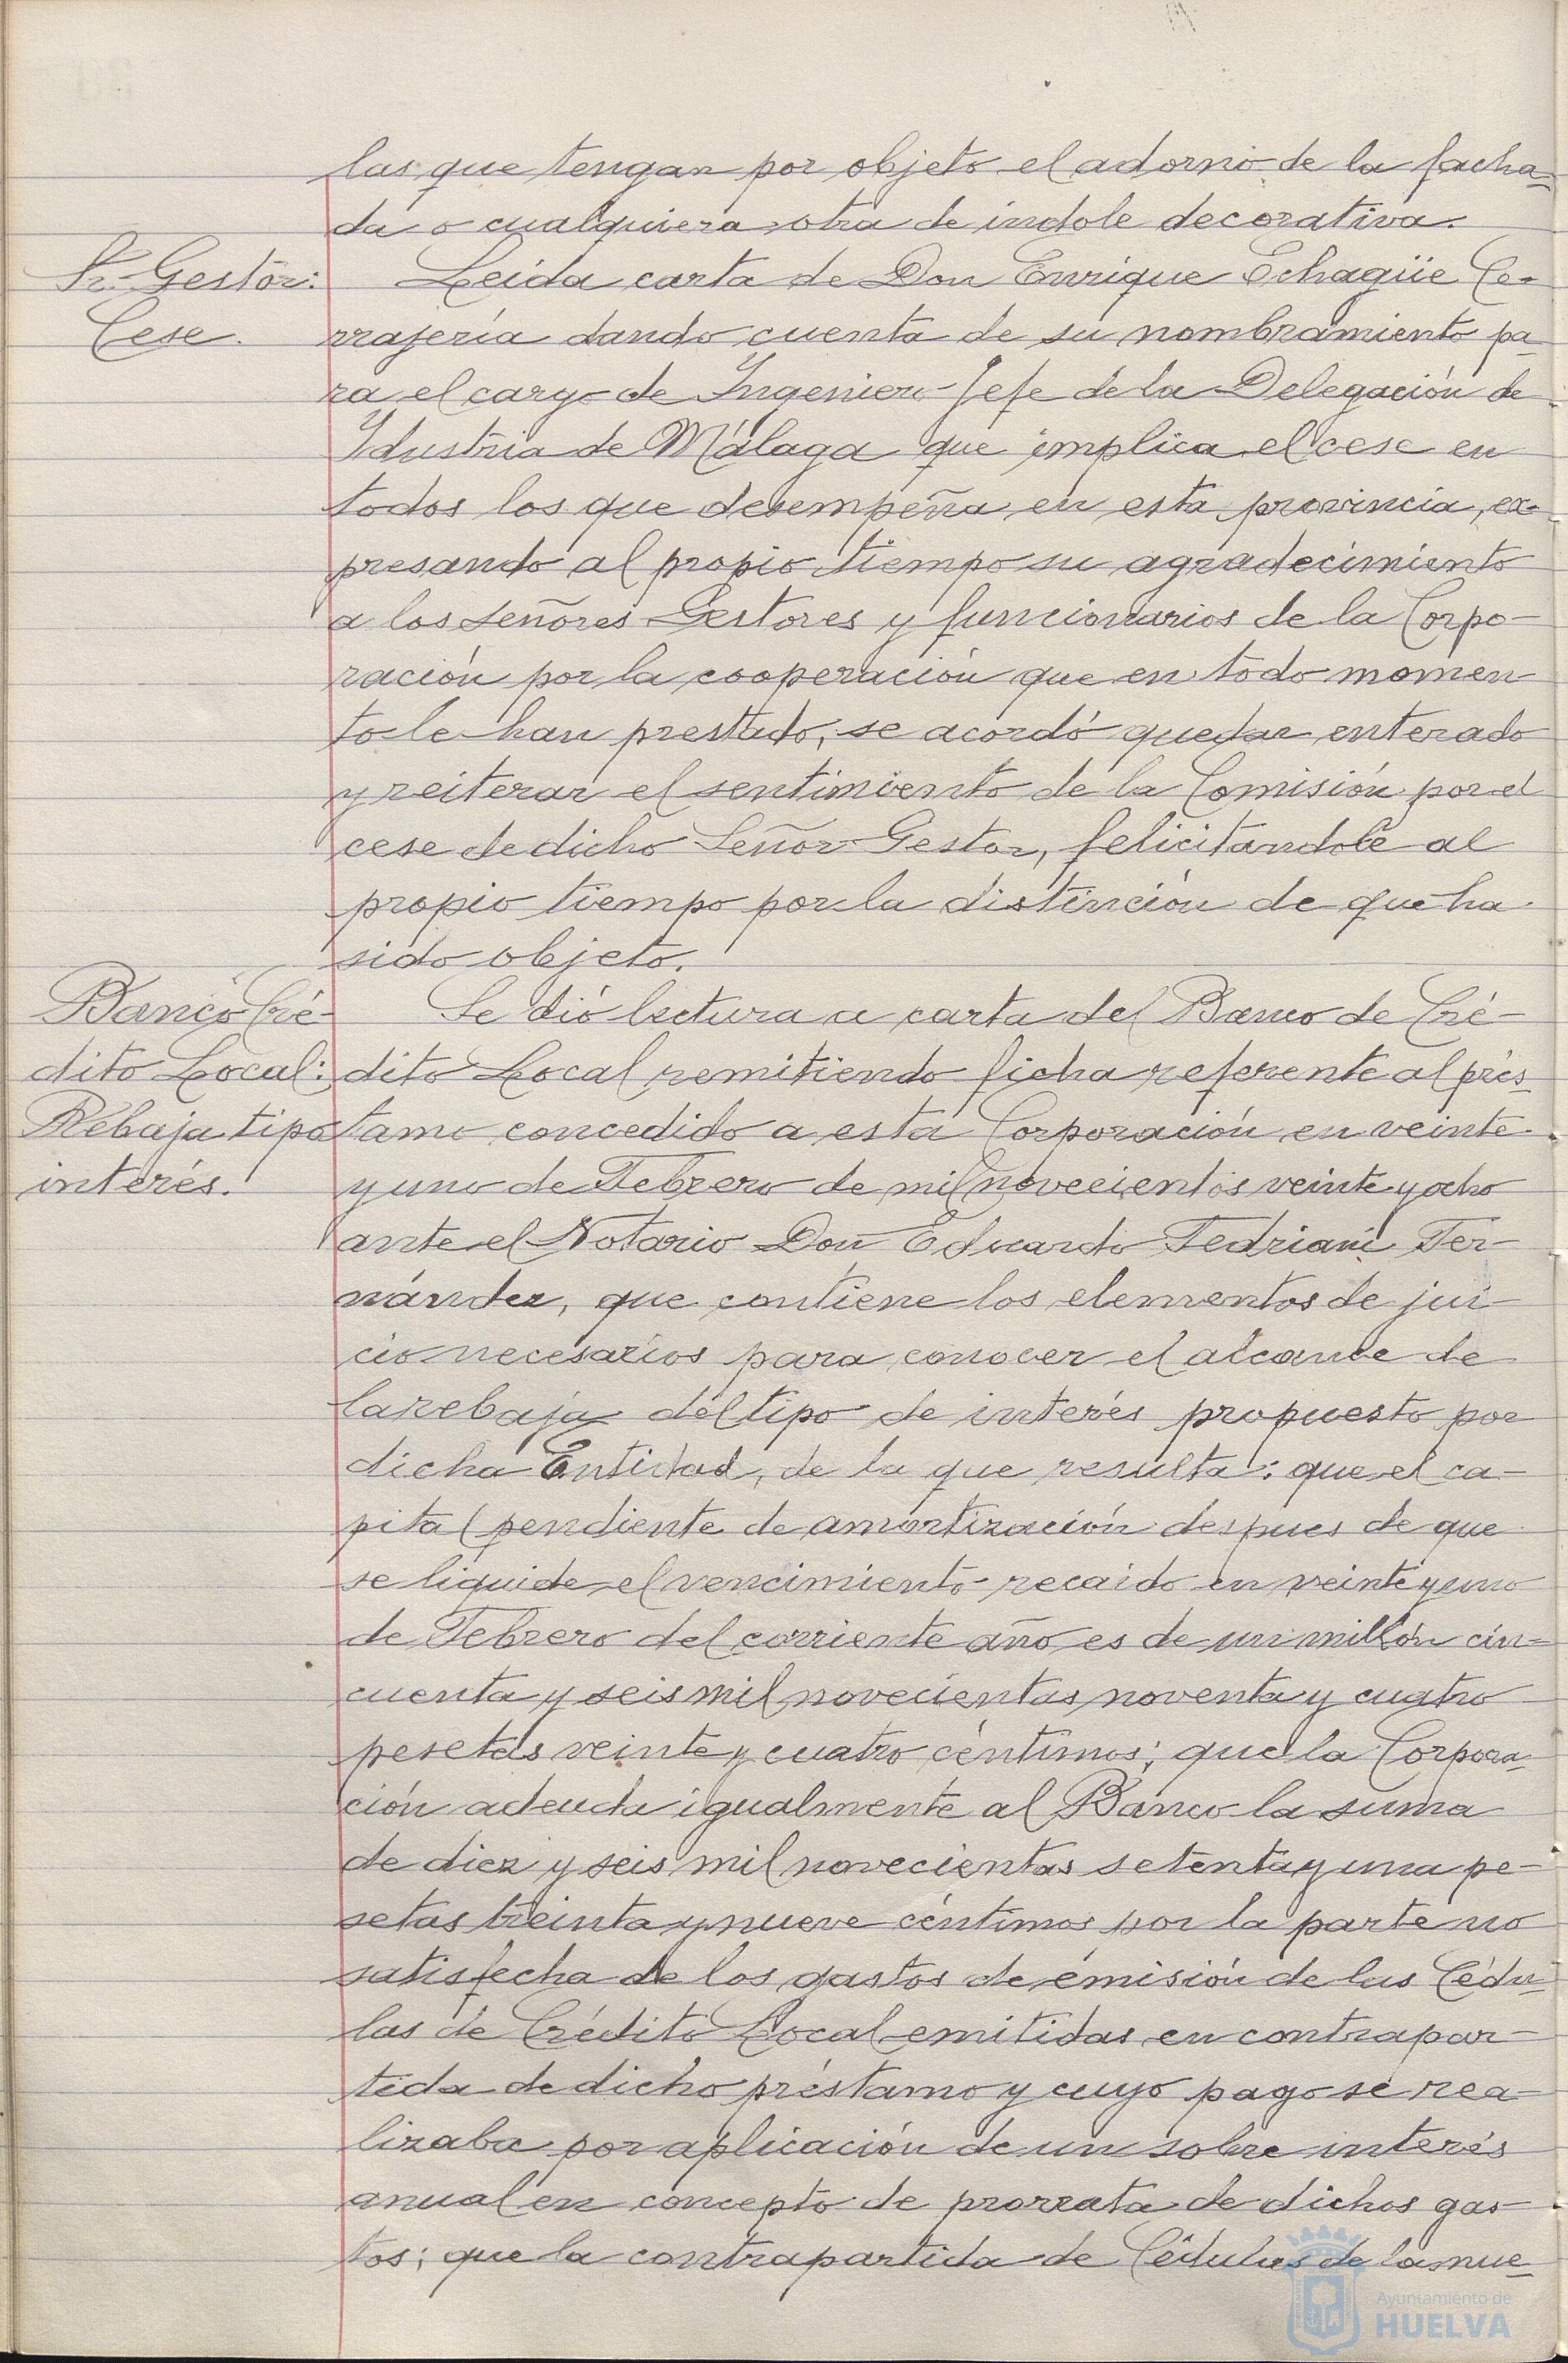 las que tengan por objeto el adorno de la facha-
da o cualquiera otra de índole decorativa.
Sr. Gestor:
Cese.
Leida carta de Don Enrique Echagüe Ce-
rrajería dando cuenta de su nombramiento pa-
ra el cargo de Ingeniero-Jefe de la Delegación de
Idustria de Málaga que implica el cese en
todos los que desempeña en esta provincia, ex-
presando al propio tiempo su agradecimiento
a los señores Gestores y funcionarios de la Corpo-
ración por la cooperación que en todo momen-
to le han prestado, se acordó quedar enterado
y reiterar el sentimiento de la Comisión por el
cese de dicho Señor Gestor, felicitándole al
propio tiempo por la distinción de que ha
sido objeto.
Banco Cré-
dito Local:
Rebaja tipo
interés.
Se dió lectura a carta del Banco de Cré-
dito Local remitiendo ficha referente al prés-
tamo concedido a esta Corporación en veinte
y uno de Febrero de mil novecientos veinte y ocho
ante el Notario Don Eduardo Fedriani Fer-
nández, que contiene los elementos de jui-
cio necesarios para conocer el alcance de
la rebaja del tipo de interés propuesto por
dicha Entidad, de la que resulta: que el ca-
pital pendiente de amortización despues de que
se liquide el vencimiento recaido en veinte y uno
de Febrero del corriente año es de un millón cin-
cuenta y seis mil novecientas noventa y cuatro
pesetas veinte y cuatro céntimos; que la Corpora-
ción adeuda igualmente al Banco la suma
de diez y seis mil novecientas setenta y una pe-
setas treinta y nueve céntimos por la parte no
satisfecha de los gastos de emisión de las Cédu-
las de Crédito Local emitidas en contrapar-
tida de dicho préstamo y cuyo pago se rea-
lizaba por aplicación de un sobre interés
anual en concepto de prorrata de dichos gas-
tos; que la contrapartida de Cédulas de la nue-
Ayuntamiento de
HUELVA